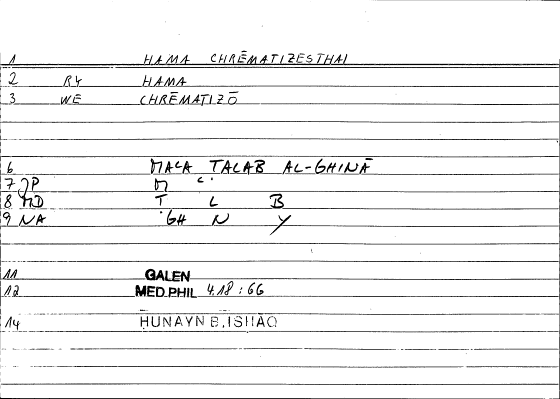 1 HAMA CHRĒMATIZESTHAI
2 RY HAMA
3 WE CHRĒMATIZŌ
6 MAʿA TALAB AL-GHINĀ
7 JP M ʿ
8 MD T L B
9 NA GH N Y
11 GALEN
12 MED.PHIL 4.18:66
14 HUNAYN B.ISHAQ